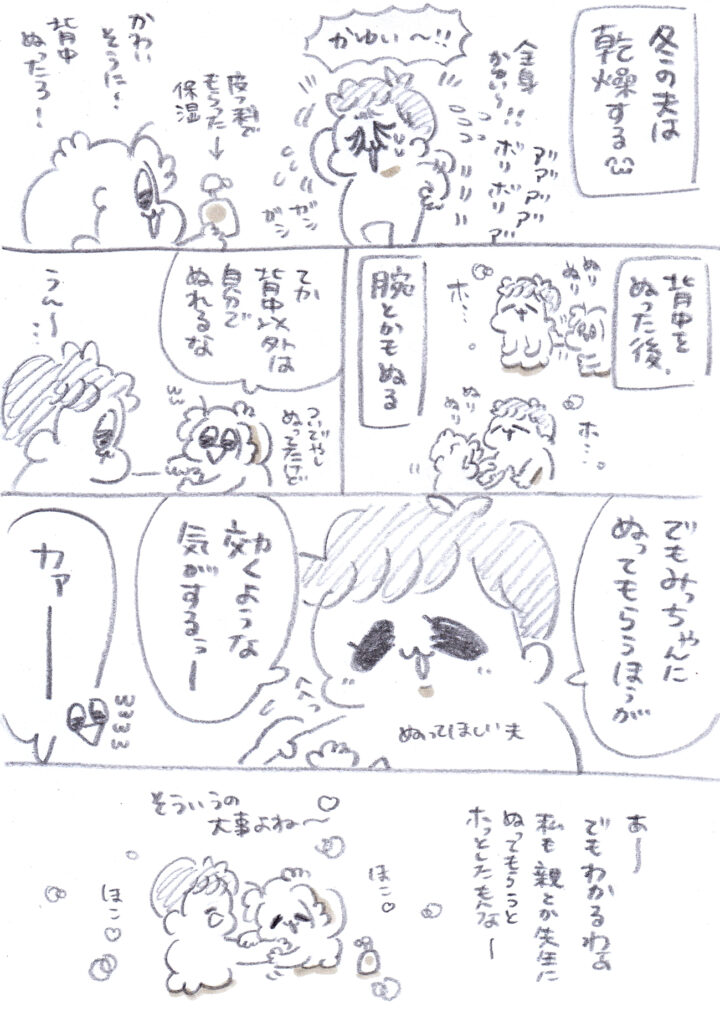 冬の夫は
乾燥する
かゆい〜!!
全身
かゆい〜!!
ボリボリ
アッアッアッアッア
ガシガシ
皮フ科で
もらった
保湿
かわい
そうに〜
背中
ぬったろ!
背中を
ぬった後、
ぬりぬり
ホ…
腕とかもぬる
ぬりぬり
ホ…。
てか
背中以外は
自分で
ぬれるな
ついでやし
ぬってたけど
うん〜…
でもみっちゃんに
ぬってもらうほうが
効くような
気がするぅー
へへっ
ぬってほしい夫
カァーーー
あ〜
でもわかるわぁ
私も親とか先生に
ぬってもらうと
ホッとしたもんな〜
そういうの
大事よね〜♡
ほこ♡
ほこ♡